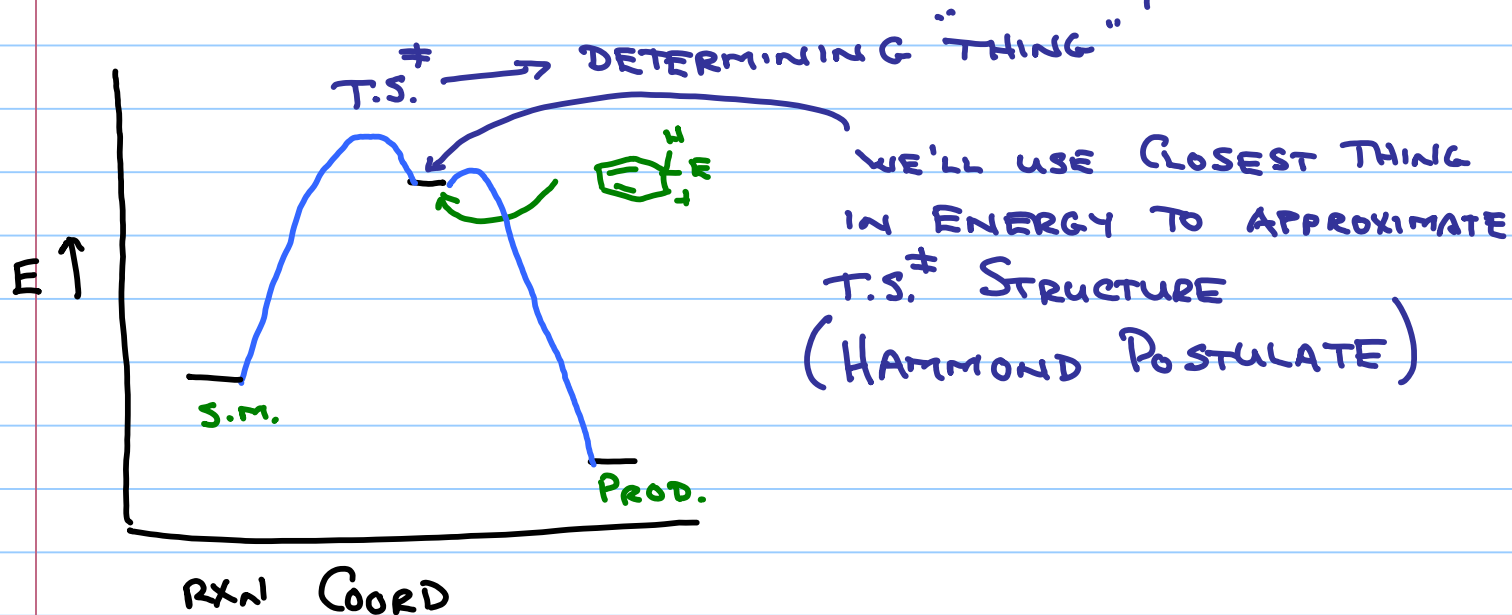 T.S.‡ → DETERMINING "THING"
WE'LL USE CLOSEST THING
IN ENERGY TO APPROXIMATE
T.S.‡ STRUCTURE
(HAMMOND POSTULATE)
H
E
+
E ↑
S.M.
PROD.
RXN COORD